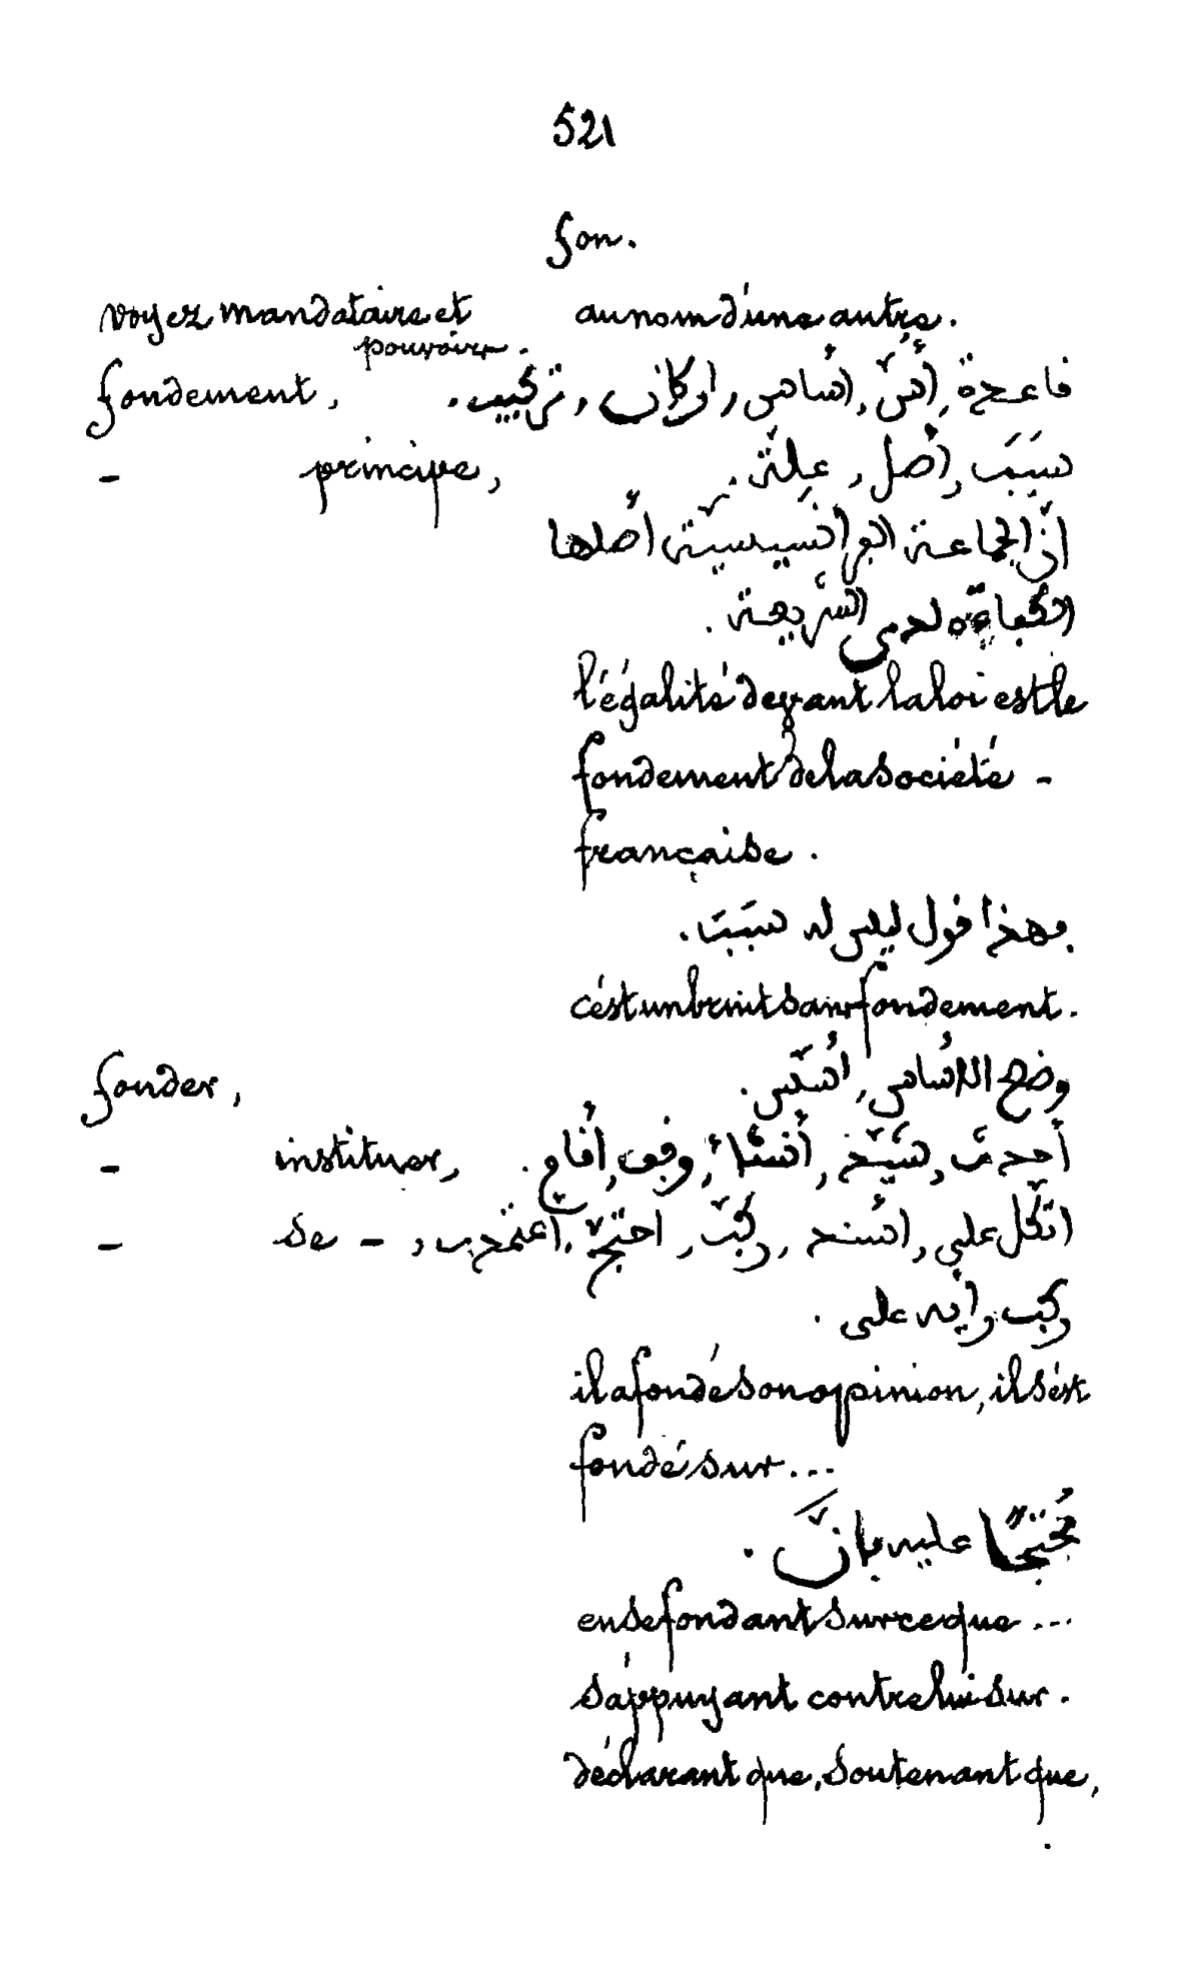 521
fon.
voyez mandataire et au nom d'une autre.
pouvoir.
fondement, فاعدة, أسّ, اساس, اركان, تركيب.
- principe, سَبَب, أصل, علّة.
انّ الجماعة البرانسيسيّة اصلها
الكباءة لدى الشريعة.
l'égalité devant la loi est le
fondement de la société -
française.
هذا فول ليس له سَبَب.
c'est un bruit sans fondement.
fonder, وضع الاساس, اسّس.
- instituer, أحدث, شيّخ, أنشأ, وفب, أفام.
- se -, اتّكل على, استند, ركّب, احتجّ, اعتمد
ركّب رأيه على.
il a fondé son opinion, il s'est
fondé sur ...
مُحتجًّا عليه بانّ.
en se fondant sur ce que ...
s'appuyant contre lui sur.
déclarant que, soutenant que,